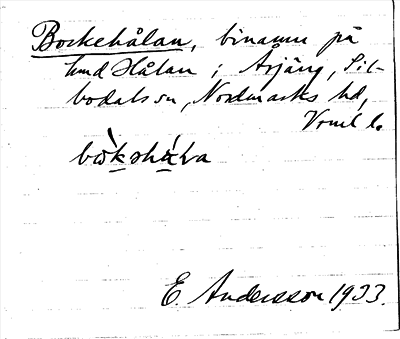 Bockehålan, binamn på
hmd Hålan i Årjäng, Sil-
bodals sn, Nordmarks hd,
Vrml l.
E. Andersson 1933.